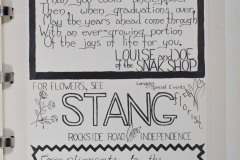 Then, when graduations over,
May the years ahead come through
With an ever-growing portion
Of the joys of life for you.
LOUISE and JOE
of the SNAK SHOP
FOR FLOWERS, SEE
Corsages Special Events
STANG
florist
ROCKSIDE ROAD INDEPENDENCE
Compliments to the